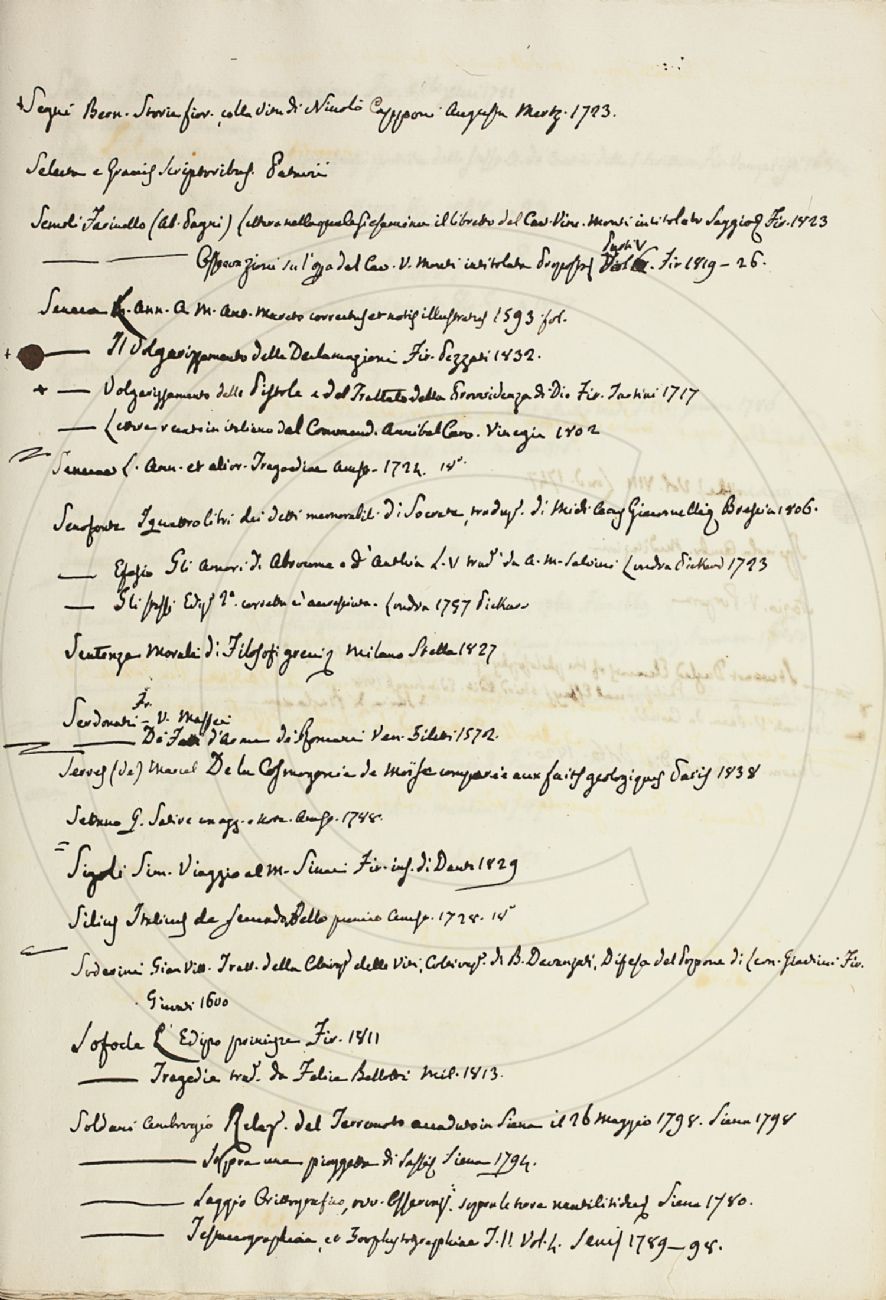 Segni Bern. Storia fior. colla vita di Nicolò Capponi Augusta Mertz. 1723.
Selecta e Graecis Scriptoribus. Patavii
Semoli Farinello (Al. Pagni) Lettera nella quale si esamina il libretto del Cav. Vinc. Monti intitolato Saggio Fir. 1823
Osservazioni su l'op. del Cav. V. Monti intitolata Proposta Parti V Fir 1819-26.
Seneca L. Ann. A M. Ant. Mureto correctus et notis illustratus 1593 fol.
+ — Il Volgarizzamento delle Declamazioni Fir. Pezzati 1832.
+ — Volgarizzamento delle Pistole e del Trattato della Provvidenza di Dio Fir. Tartini 1717
— Lettere recate in italiano dal Commend. Annibal Caro. Vinegia 1802
Seneca L. Ann. et alior. Tragoediae Amst. 1724.
Senofonte I quattro libri dei detti memorabili di Socrate, traduz. di Brescia 1806.
— Efesio Gli Amori di Abrocome e d'Anthia L. V trad. da A. M. Salvini Londra Pickard 1723
— Gli stessi Ediz. 2a. corretta e accresciuta. Londra 1757 Pickar
Sentenze Morali di Filosofi greci Milano Stella 1827
Serdonati Fr. - V. Maffei
— De' Fatti d'Arme de' Romani Ven. Ziletti 1572.
Serres (de) Marcel De la Cosmogonie de Moïse comparée aux faits geologiques Paris 1838
Settano Q. Satire con agg. e note. Amst. 1788.
Sigoli Sim. Viaggio al M. Sinai Fir. ins. di Dante 1829
Silius Italicus de secundo Bello punico Amst. 1728.
Soderini Gian Vitt. Tratt. della Coltivaz. delle Viti, Coltivaz. di B. Davanzati, Difesa del Popone di Leon. Giachini Fir.
Giunti 1600
Sofocle L'Edipo principe Fir. 1811
— Tragedie trad. da Felice Bellotti Mil. 1813.
Soldani Ambrogio Relaz. del Terremoto accaduto in Siena il 26 Maggio 1798. Siena 1798
— Sopra una pioggetta di Sassi Siena 1794.
— Saggio Orittografico, ovv. Osservaz. sopra le terre nautilitiche Siena 1780.
— Testaceographiae, et Zoophytographiae T. II. Vol. 4. Senis 1789-98.